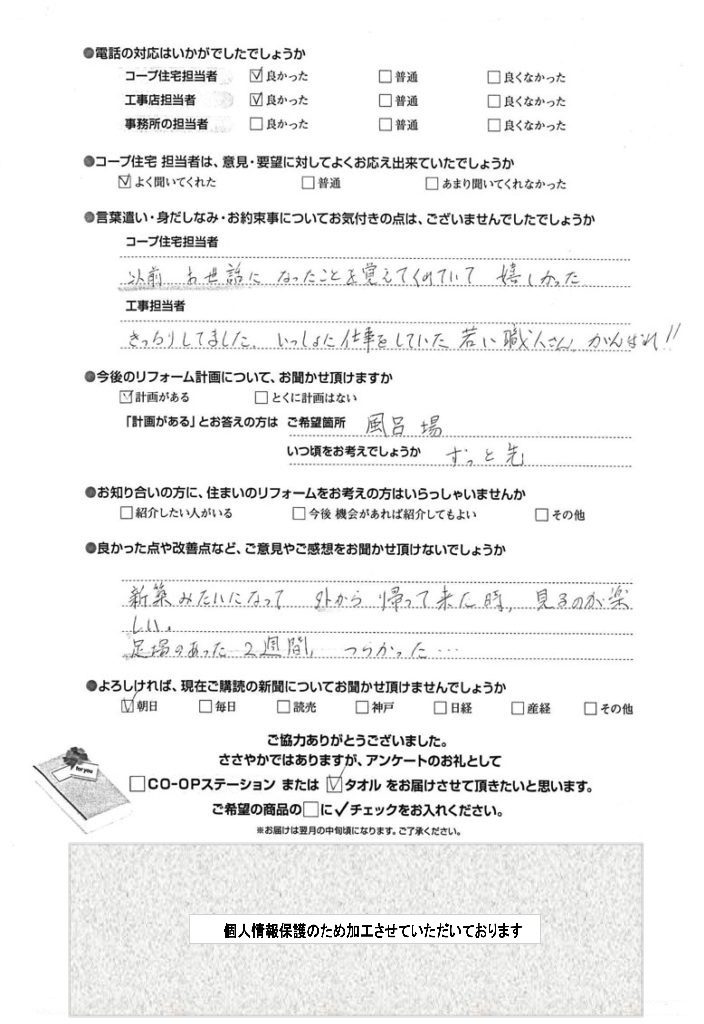 ●電話の対応はいかがでしたでしょうか
コープ住宅担当者 ☑良かった □普通 □良くなかった
工事店担当者 ☑良かった □普通 □良くなかった
事務所の担当者 □良かった □普通 □良くなかった
●コープ住宅 担当者は、意見・要望に対してよくお応え出来ていたでしょうか
☑よく聞いてくれた □普通 □あまり聞いてくれなかった
●言葉遣い・身だしなみ・お約束事についてお気付きの点は、ございませんでしたでしょうか
コープ住宅担当者
以前 お世話に なったことを覚えてくれていて 嬉しかった
工事担当者
きっちりしてました。いっしょに仕事をしていた 若い職人さん、がんばれ!!
●今後のリフォーム計画について、お聞かせ頂けますか
☑計画がある □とくに計画はない
「計画がある」とお答えの方は ご希望箇所 風呂場
いつ頃をお考えでしょうか ずっと先
●お知り合いの方に、住まいのリフォームをお考えの方はいらっしゃいませんか
□紹介したい人がいる □今後 機会があれば紹介してもよい □その他
●良かった点や改善点など、ご意見やご感想をお聞かせ頂けないでしょうか
新築みたいになって 外から 帰って来た時、見るのが楽
しい。
足場のあった 2週間、つらかった…
●よろしければ、現在ご購読の新聞についてお聞かせ頂けませんでしょうか
☑朝日 □毎日 □読売 □神戸 □日経 □産経 □その他
ご協力ありがとうございました。
ささやかではありますが、アンケートのお礼として
for you
□CO-OPステーション または ☑タオル をお届けさせて頂きたいと思います。
ご希望の商品の□に✓チェックをお入れください。
※お届けは翌月の中旬頃になります。ご了承ください。
個人情報保護のため加工させていただいております